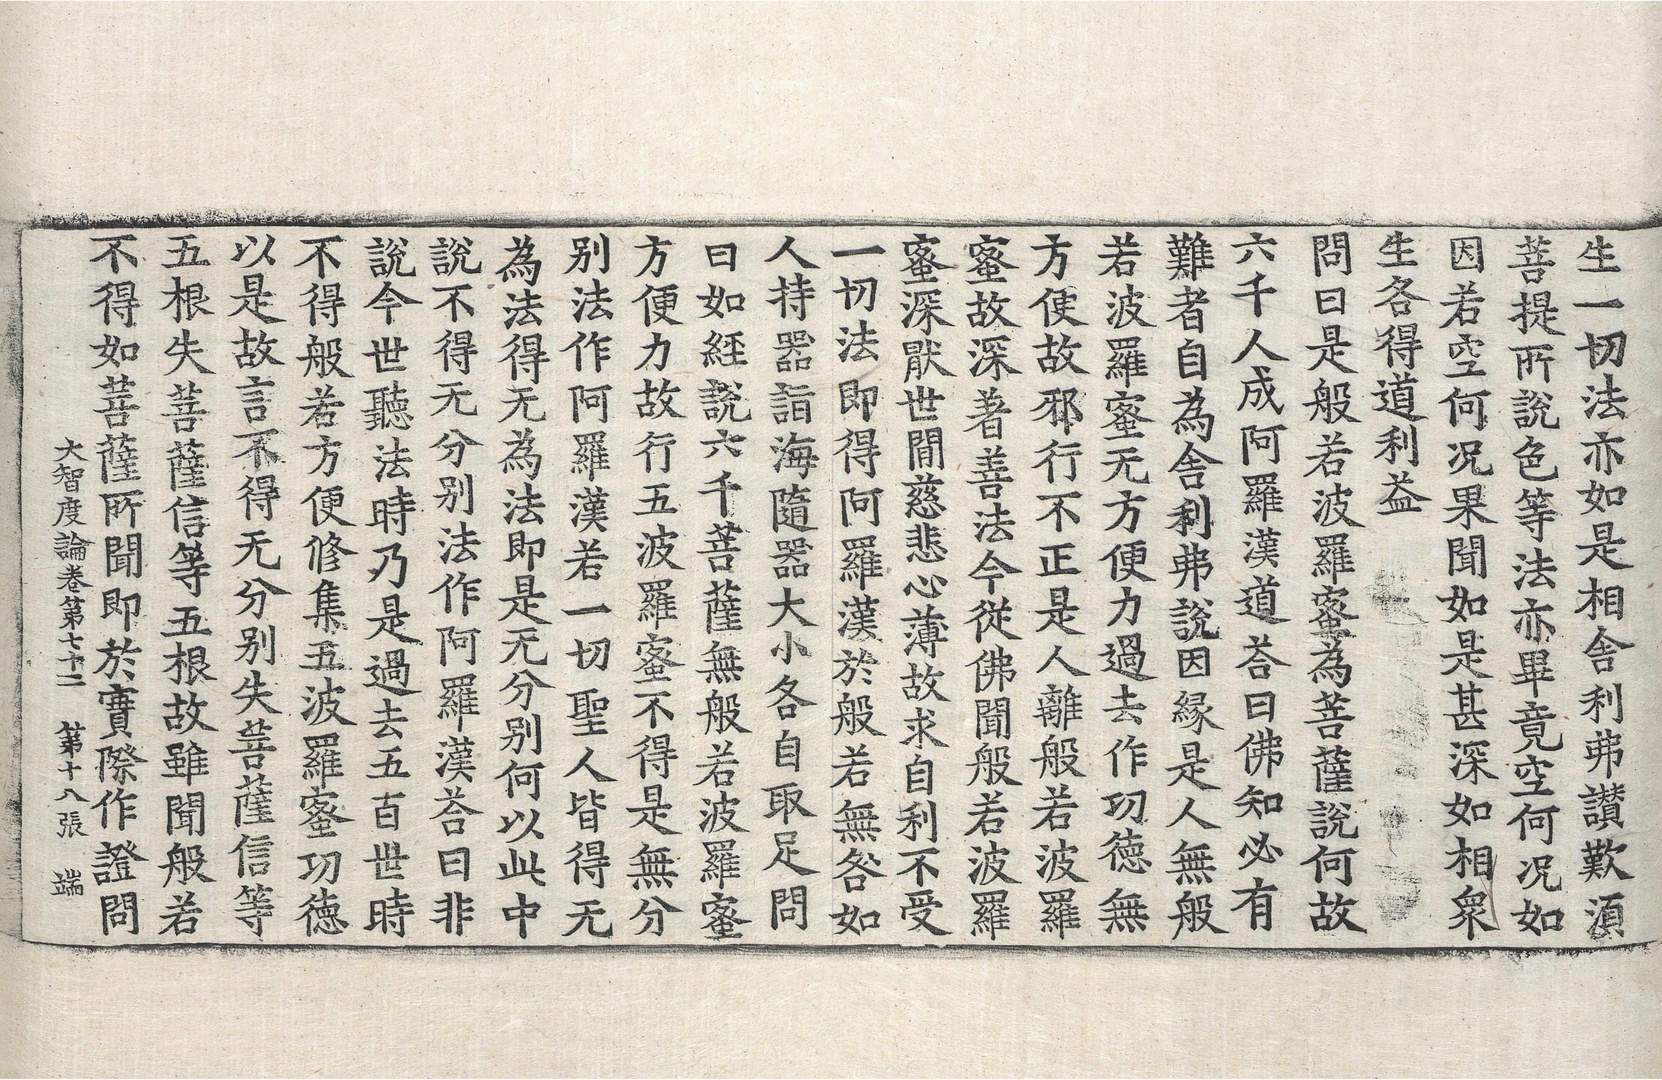 生一切法亦如是相舍利弗讃歎湏
菩提所說色等法亦畢竟空何況如
因若空何況果聞如是甚深如相衆
生各得道利益
問曰是般若波羅蜜為菩薩說何故
六千人成阿羅漢道荅曰佛知必有
難者自為舍利弗說因緣是人無般
若波羅蜜无方便力過去作功德無
方便故邪行不正是人離般若波羅
蜜故深著善法今從佛聞般若波羅
蜜深猒世間慈悲心薄故求自利不受
一切法即得阿羅漢於般若無咎如
人持器詣海隨器大小各自取足問
曰如經說六千菩薩無般若波羅蜜
方便力故行五波羅蜜不得是無分
別法作阿羅漢若一切聖人皆得无
為法得无為法即是无分別何以此中
說不得无分別法作阿羅漢荅曰非
說今世聽法時乃是過去五百世時
不得般若方便修集五波羅蜜功德
以是故言不得无分別失菩薩信等
五根失菩薩信等五根故雖聞般若
不得如菩薩所聞即於實際作證問
大智度論卷第七十二 第十八張 端